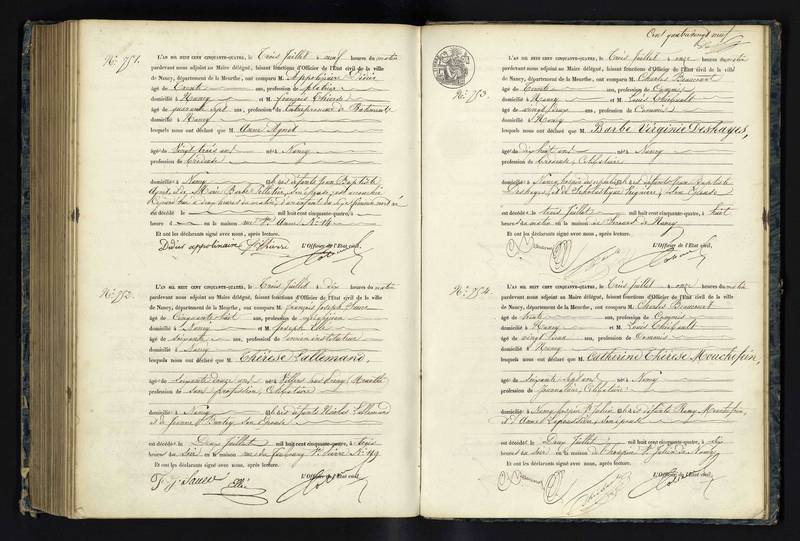 N.º 951.
L'AN MIL HUIT CENT CINQUANTE-QUATRE, le Trois Juillet à neuf heures du matin
pardevant nous adjoint au Maire délégué, faisant fonctions d'Officier de l'État civil de la ville
de Nancy, département de la Meurthe, ont comparu M. Appolinaire Didier
âgé de Trente ans, profession de plâtrier
domicilié à Nancy et M. françois Thierse
âgé de quarante sept ans, profession de Entrepreneur de Bâtiments
domicilié à Nancy
lesquels nous ont déclaré que M. Anne Agnet
âgée de Vingt trois ans née à Nancy
profession de
domiciliée à Nancy défunts Jean Baptiste
Agnet, & de Marie Barbe Pelletier, Son Epouse est accouchée
est décédé le mil huit cent cinquante-quatre, à
heure à en la maison rue St. Anne N.º 14
Et ont les déclarants signé avec nous, après lecture.
Didier appolinaire L'Officier de l'État civil,
N.º 952.
L'AN MIL HUIT CENT CINQUANTE-QUATRE, le Trois Juillet à dix heures du matin
pardevant nous adjoint au Maire délégué, faisant fonctions d'Officier de l'État civil de la ville
de Nancy, département de la Meurthe, ont comparu M. françois Joseph
âgé de Cinquante huit ans, profession de
domicilié à Nancy et M. Joseph
âgé de Soixante ans, profession de ancien instituteur
domicilié à Nancy
lesquels nous ont déclaré que M. Thérèse Lallemand,
âgée de Soixante douze ans née à Villers Meurthe
profession de Sans profession, Célibataire
domiciliée à Nancy défunts Nicolas Lallemand
et de Jeanne Son Epouse
est décédée le Deux Juillet mil huit cent cinquante-quatre, à trois
heures du soir en la maison rue du faubourg St. Pierre N.º 119
Et ont les déclarants signé avec nous, après lecture.
L'Officier de l'État civil,
Cent quatre vingt neuf
N.º 953.
L'AN MIL HUIT CENT CINQUANTE-QUATRE, le Trois Juillet à onze heures du matin
pardevant nous adjoint au Maire délégué, faisant fonctions d'Officier de l'État civil de la ville
de Nancy, département de la Meurthe, ont comparu M. Charles Beaumont
âgé de Trente ans, profession de Commis
domicilié à Nancy et M. Louis Thiébault
âgé de vingt deux ans, profession de Commis
domicilié à Nancy
lesquels nous ont déclaré que M. Barbe Virginie Deshayes,
âgée de dix huit ans née à Nancy
profession de Célibataire
domiciliée à Nancy défunts Jean Baptiste
Deshayes, et de Son Epouse
est décédée le trois Juillet mil huit cent cinquante-quatre, à huit
heures du matin en la maison de Secours de Nancy
Et ont les déclarants signé avec nous, après lecture.
L'Officier de l'État civil,
N.º 954.
L'AN MIL HUIT CENT CINQUANTE-QUATRE, le Trois Juillet à onze heures du matin
pardevant nous adjoint au Maire délégué, faisant fonctions d'Officier de l'État civil de la ville
de Nancy, département de la Meurthe, ont comparu M. Charles Beaumont
âgé de trente ans, profession de Commis
domicilié à Nancy et M. Louis Thiébault
âgé de vingt deux ans, profession de Commis
domicilié à Nancy
lesquels nous ont déclaré que M. Catherine Thérèse Mouchepin,
âgée de Soixante sept ans née à Nancy
profession de Journalière, Célibataire
domiciliée à Nancy, hospice St. Julien défunts Remy Mouchepin,
et d'Anne Son épouse
est décédée le Deux Juillet mil huit cent cinquante-quatre, à dix
heures du soir en la maison de l'hospice St. Julien de Nancy
Et ont les déclarants signé avec nous, après lecture.
L'Officier de l'État civil,